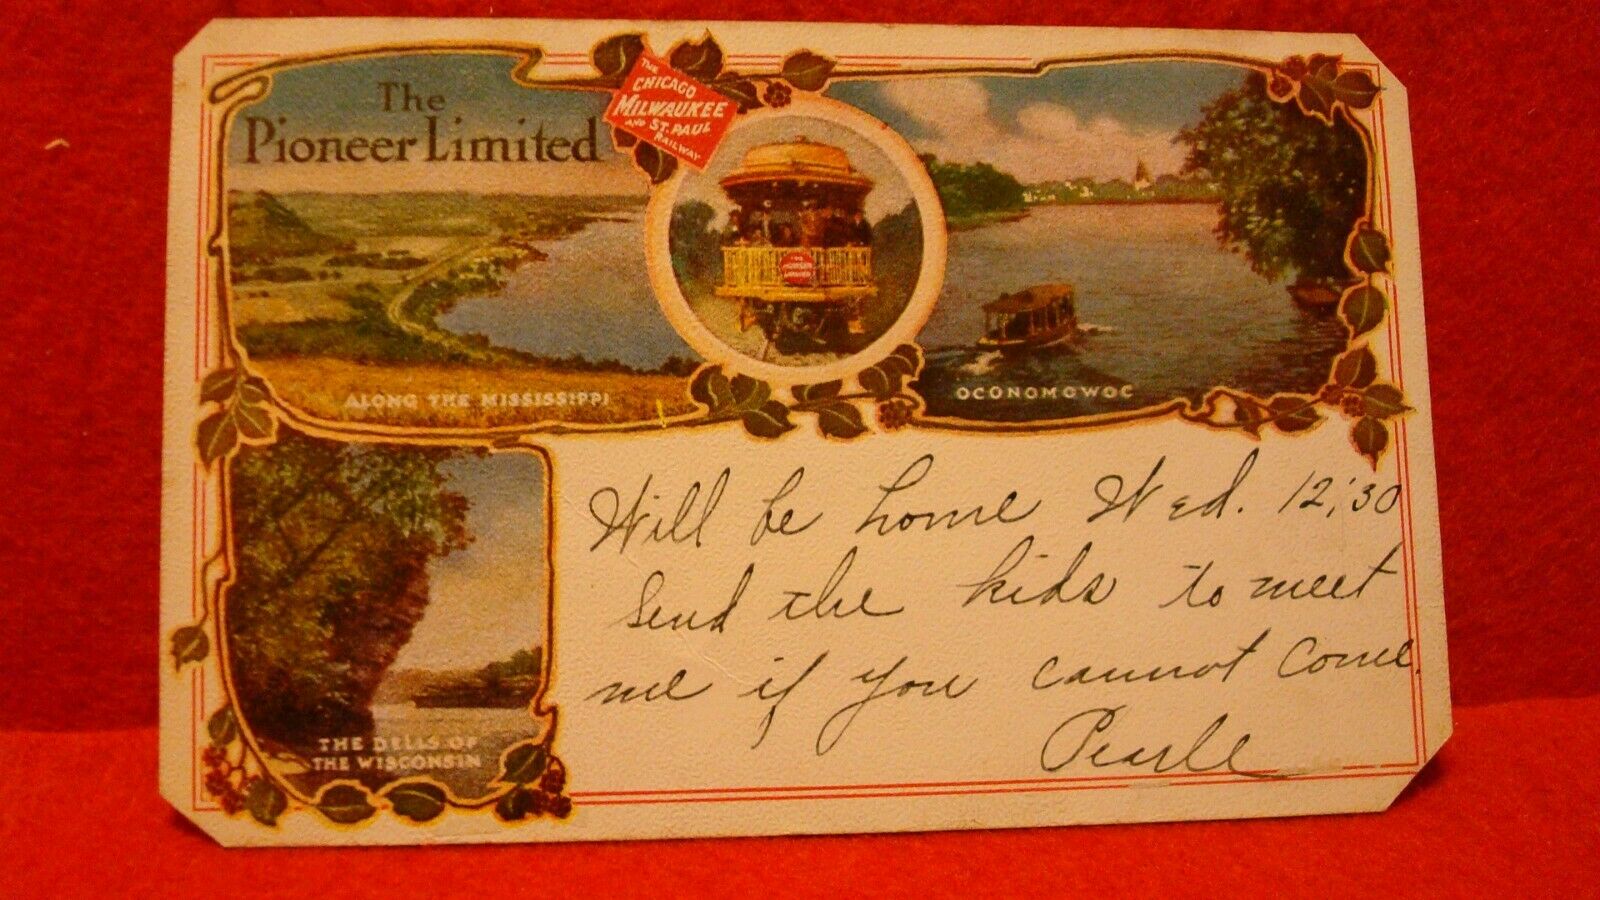 The
Pioneer Limited
THE
CHICAGO
MILWAUKEE
AND ST. PAUL
RAILWAY
THE
PIONEER
LIMITED
ALONG THE MISSISSIPPI
OCONOMOWOC
THE DELLS OF
THE WISCONSIN
Will be home Wed. 12;30
Send the kids to meet
me if you cannot come.
Pearle